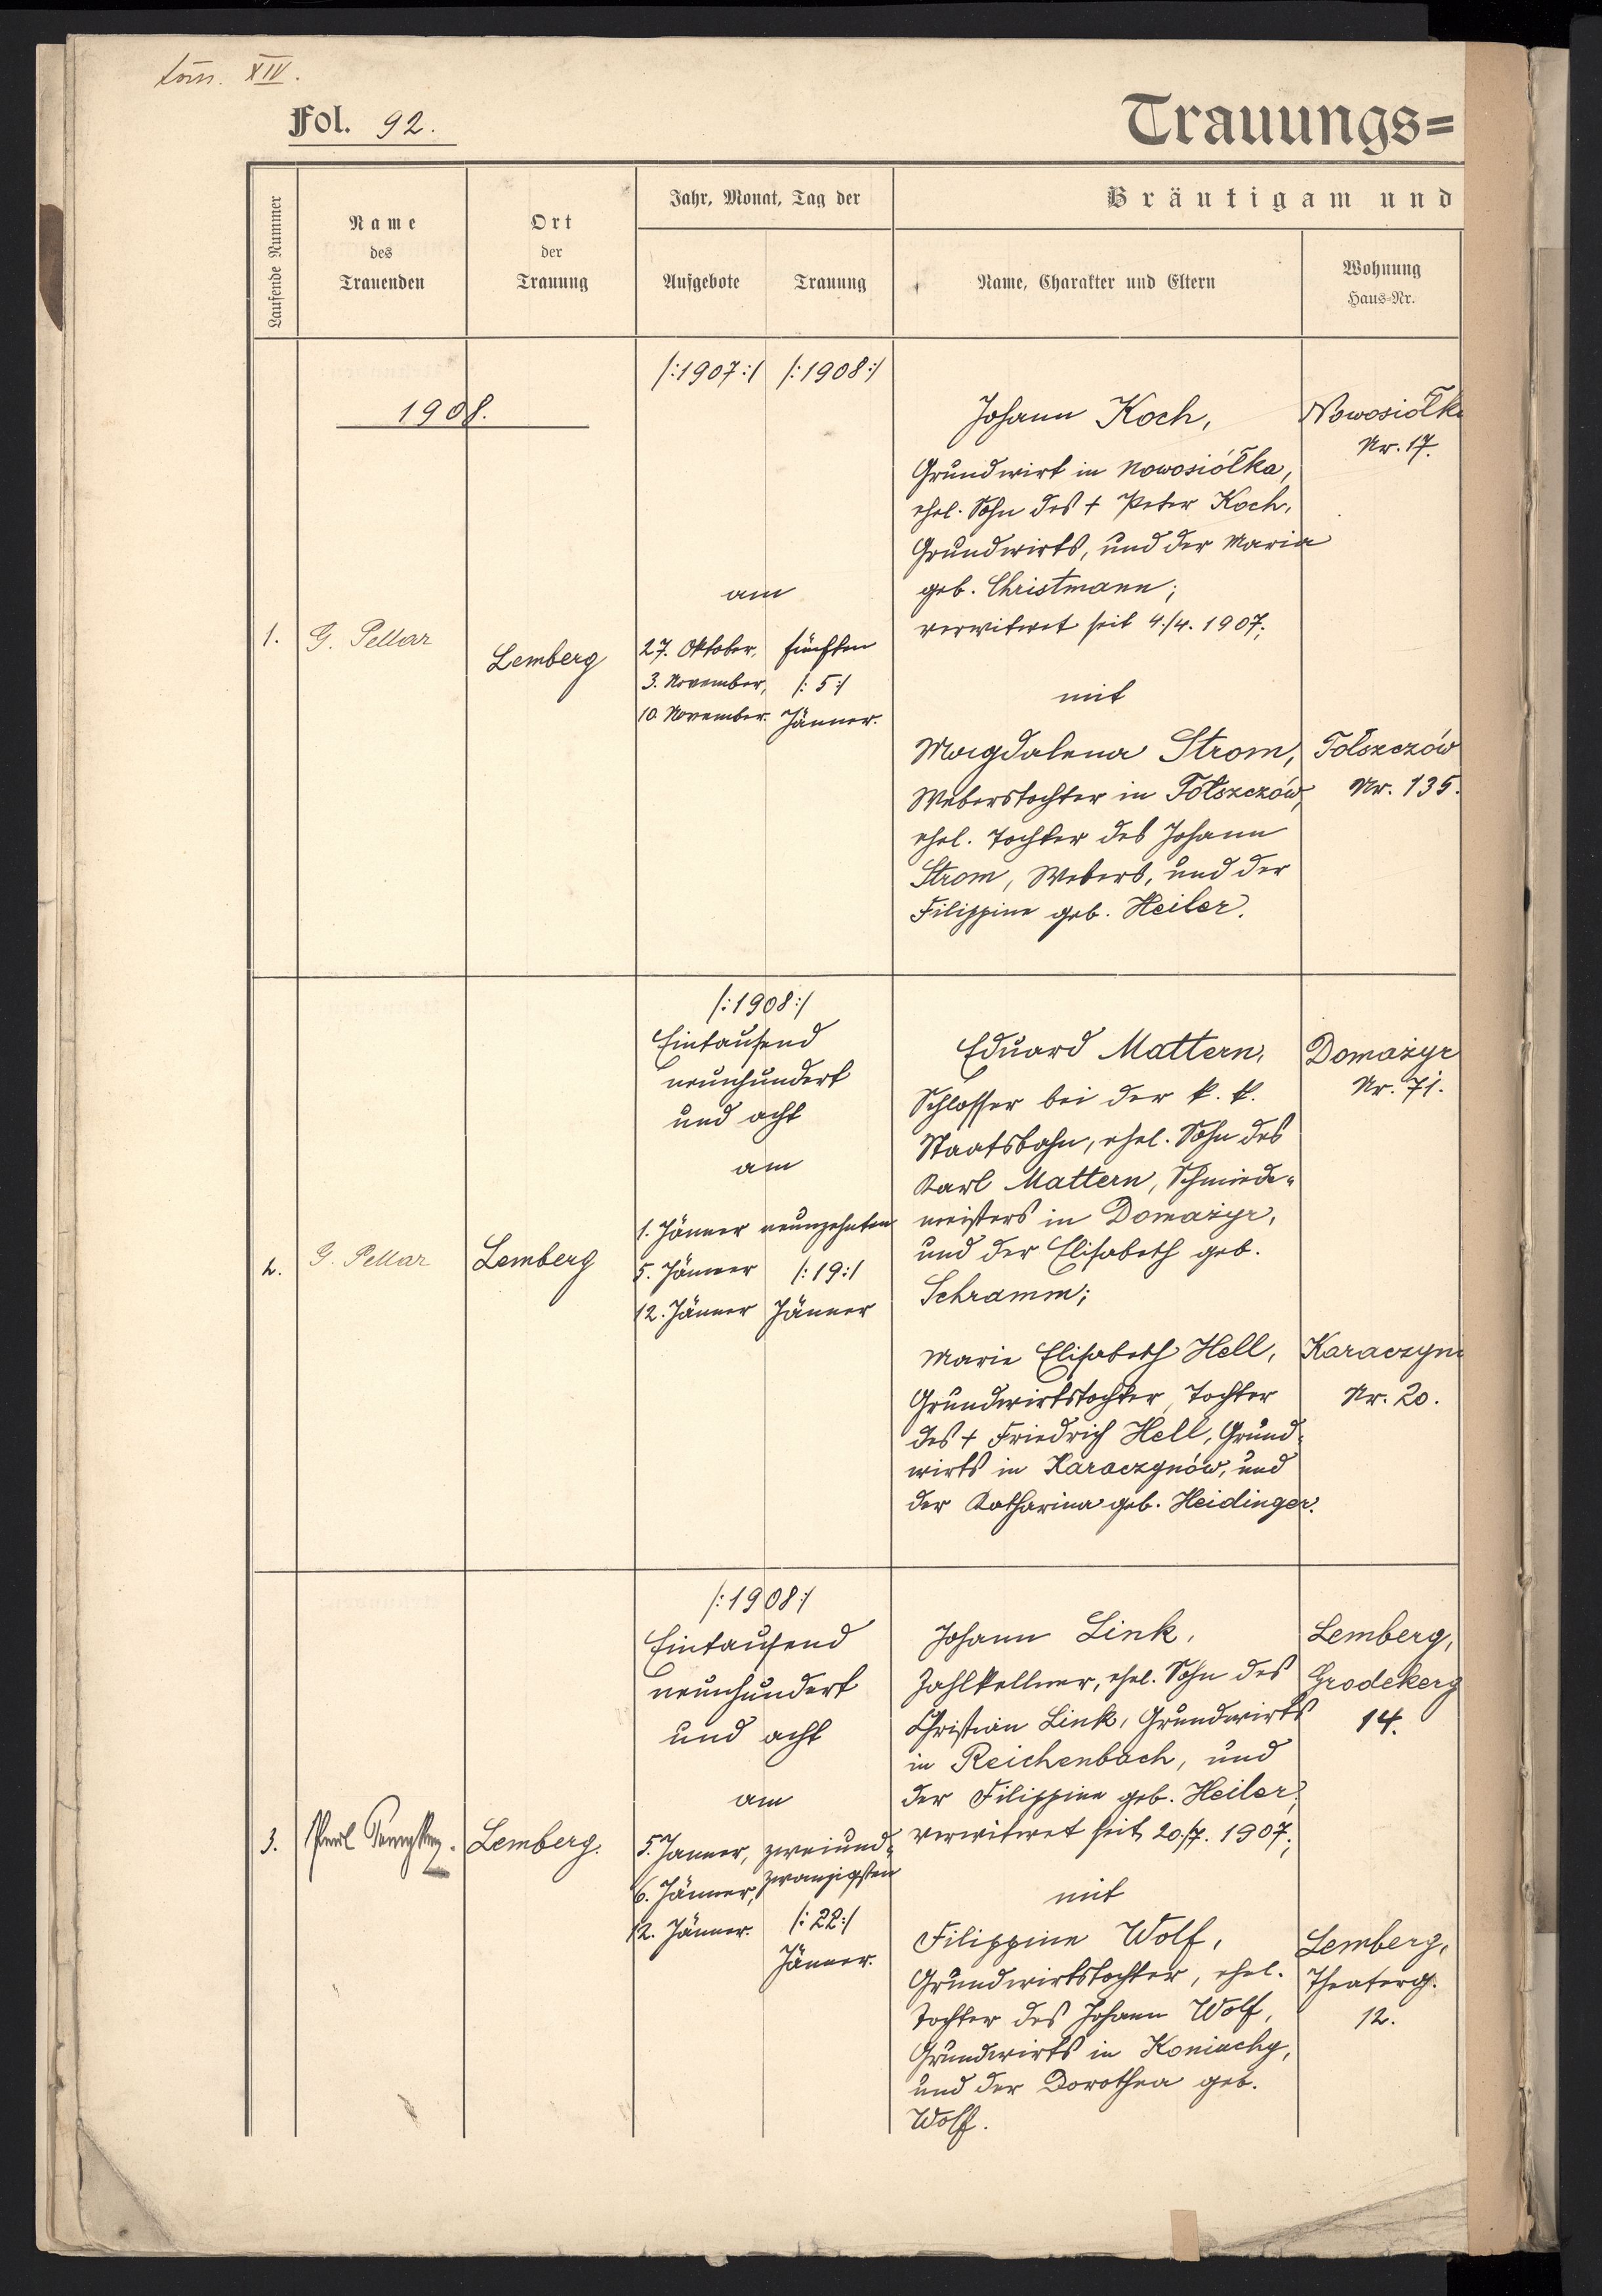 tom. XIV.
Fol. 92.
Trauungs=
Laufende Nummer
Name
des
Trauenden
Ort
der
Trauung
Jahr, Monat, Tag der
Aufgebote
Trauung
Bräutigam und
Name, Charakter und Eltern
Wohnung
Haus=Nr.
1908.
1.
G. Pellar
Lemberg
/:1907:/ /:1908:/
am
27. Oktober, fünften
3. November, /:5:/
10. November. Jänner.
Johann Koch,
Grundwirt in Nowosiółka,
ehel. Sohn des + Peter Koch,
Grundwirts, und der Maria
geb. Christmann;
verwitwet seit 4./4. 1907;
mit
Magdalena Strom,
Weberstochter in Tołszczów,
ehel. Tochter des Johann
Strom, Webers, und der
Filippine geb. Heiler.
Nowosiółk
Nr. 17.
Tołszczów
Nr. 135.
2.
G. Pellar
Lemberg
/:1908:/
Eintausend
neunhundert
und acht
am
1. Jänner neunzehnten
5. Jänner /:19:/
12. Jänner Jänner
Eduard Mattern,
Schlosser bei der k. k.
Staatsbahn, ehel. Sohn des
Karl Mattern, Schmiede-
meisters in Domażyr,
und der Elisabeth geb.
Schramm;
Marie Elisabeth Hell,
Grundwirtstochter, Tochter
des + Friedrich Hell, Grund-
wirts in Karaczynów, und
der Katharina geb. Heidinger.
Domażyr
Nr. 71.
Karaczyn
Nr. 20.
3.
Lemberg.
/:1908:/
Eintausend
neunhundert
und acht
am
5. Jänner, zweiund-
6. Jänner, zwanzigsten
12. Jänner. /:22:/
Jänner.
Johann Link,
Zahlkellner, ehel. Sohn des
Christian Link, Grundwirts
in Reichenbach, und
der Filippine geb. Heiler;
verwitwet seit 20./7. 1907;
mit
Filippine Wolf,
Grundwirtstochter, ehel.
Tochter des Johann Wolf,
Grundwirts in Koniuchy,
und der Dorothea geb.
Wolf.
Lemberg,
Grodekerg
14.
Lemberg,
Theaterg.
12.